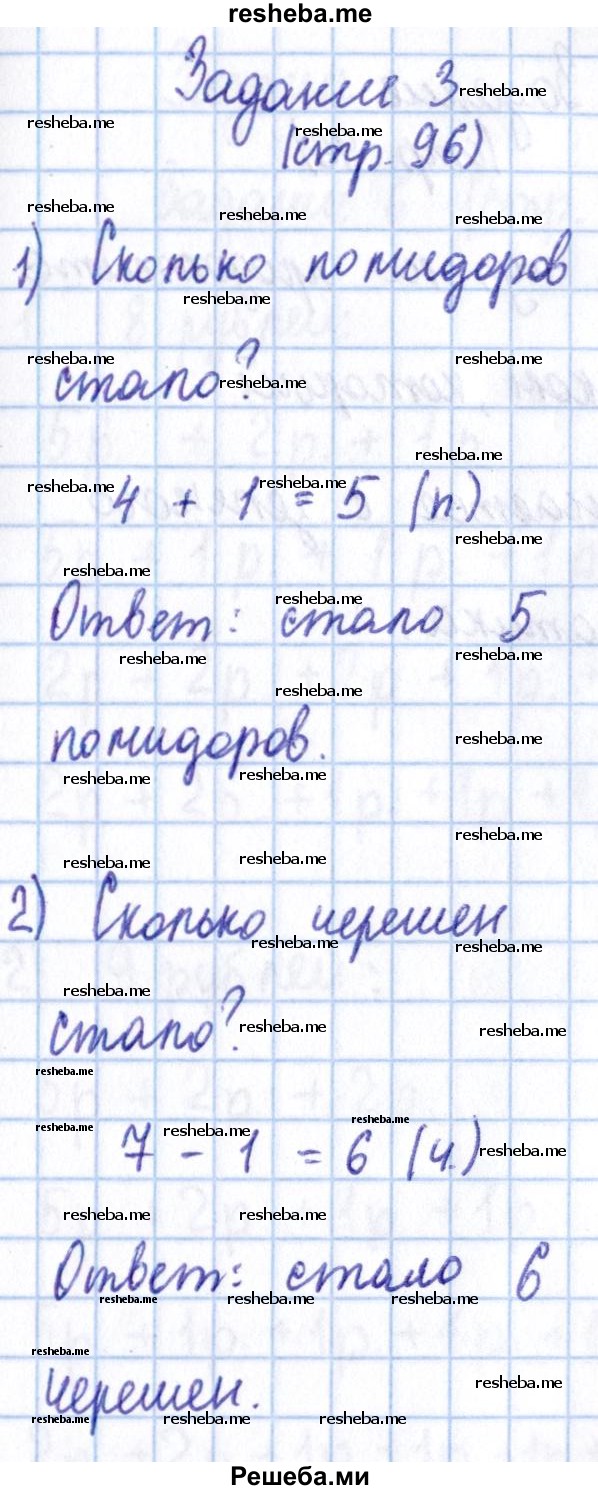 resheba.me
Задание 3
(стр. 96)
1) Сколько помидоров
стало?
4 + 1 = 5 (п.)
Ответ: стало 5
помидоров.
2) Сколько черешен
стало?
7 - 1 = 6 (ч.)
Ответ: стало 6
черешен.
Решеба.ми